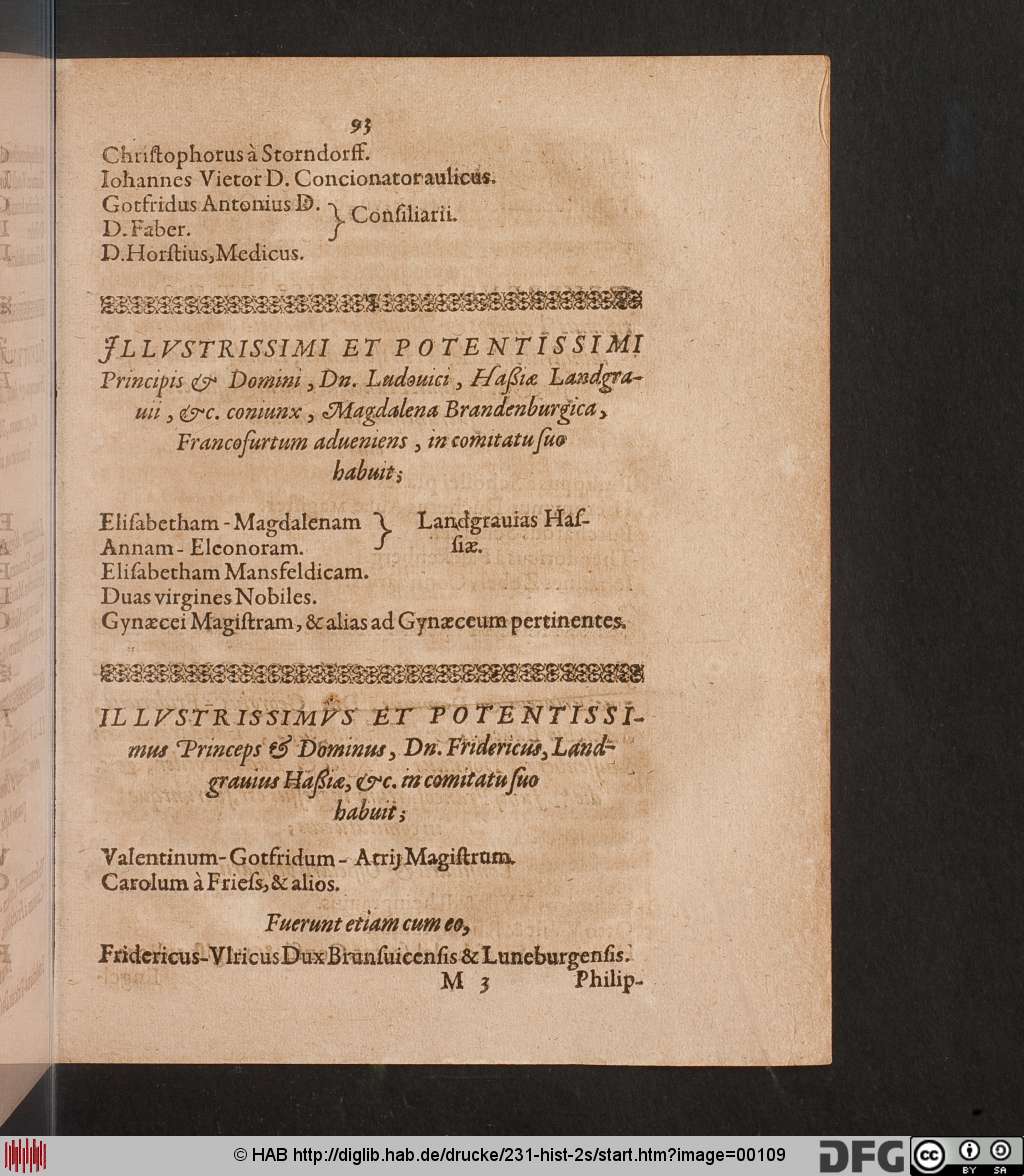 93
Chriſtophorus à Storndorff.
Iohannes Vietor D. Concionator aulicus.
Gotfridus Antonius D. } Conſiliarii.
D. Faber.
D. Horſtius, Medicus.
ILLVSTRISSIMI ET POTENTISSIMI
Principis & Domini, Dn. Ludouici, Haßiæ Landgra-
uii, &c. coniunx, Magdalena Brandenburgica,
Francofurtum adueniens, in comitatu ſuo
habuit;
Eliſabetham - Magdalenam } Landgrauias Haſ-
Annam - Eleonoram. ſiæ.
Eliſabetham Mansfeldicam.
Duas virgines Nobiles.
Gynæcei Magiſtram, & alias ad Gynæceum pertinentes.
ILLVSTRISSIMVS ET POTENTISSI-
mus Princeps & Dominus, Dn. Fridericus, Land-
grauius Haßiæ, &c. in comitatu ſuo
habuit;
Valentinum - Gotfridum - Atrij Magiſtrum.
Carolum à Frieſs, & alios.
Fuerunt etiam cum eo,
Fridericus-Vlricus Dux Brunſuicenſis & Luneburgenſis.
M 3 Philip-
© HAB http://diglib.hab.de/drucke/231-hist-2s/start.htm?image=00109
DFG
cc BY SA